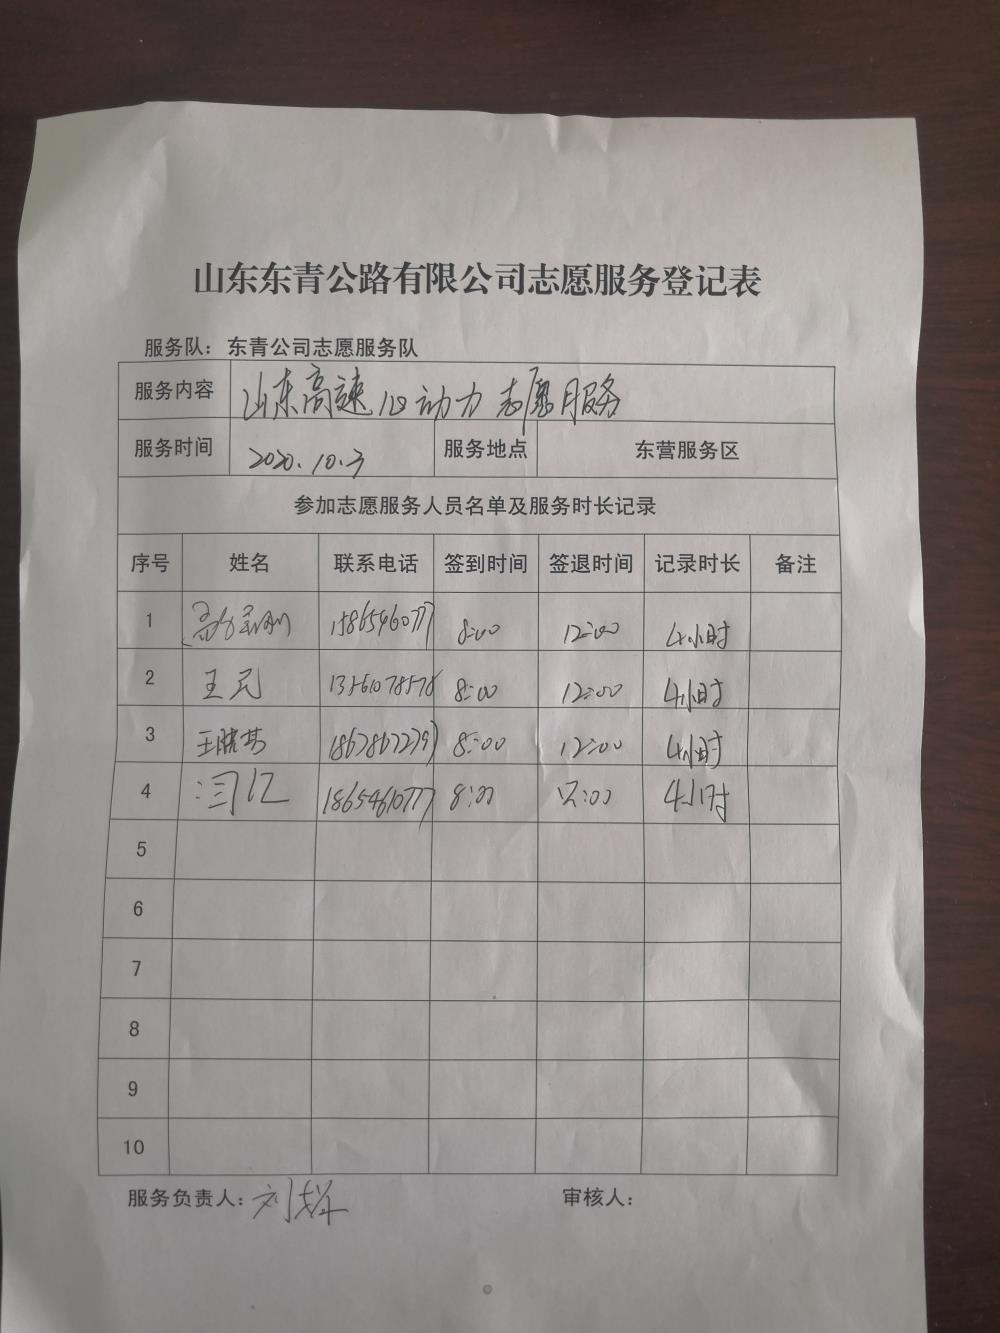 山东东青公路有限公司志愿服务登记表
服务队：东青公司志愿服务队
服务内容 山东高速心动力志愿服务
服务时间 2020.10.3 服务地点 东营服务区
参加志愿服务人员名单及服务时长记录
序号 姓名 联系电话 签到时间 签退时间 记录时长 备注
1 15865460777 8:00 12:00 4小时
2 王民 8:00 12:00 4小时
3 8:00 12:00 4小时
4 闫亿 18654610777 8:00 12:00 4小时
5
6
7
8
9
10
服务负责人： 审核人：